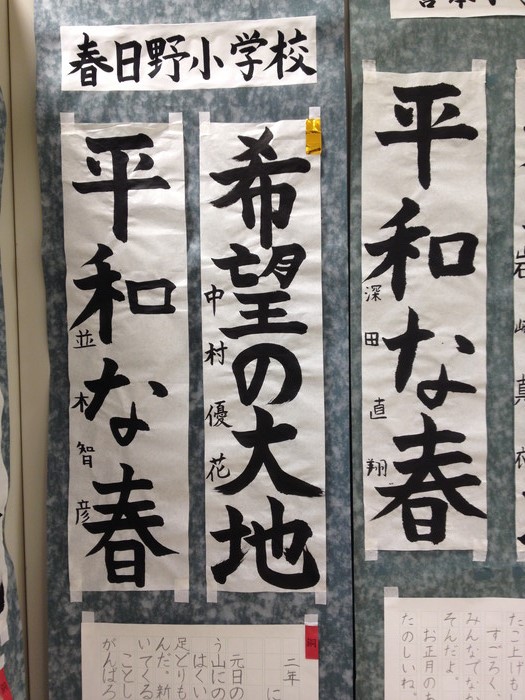 春日野小学校
希望の大地
中村優花
平和な春
並木智彦
平和な春
深田直翔
銅
二年
元日の
う山にの
はくい
足どりも
んだ。新
いてくる
ことし
がんばろ
たこ上げも
すごろく、
みんなでな
そんだよ。
お正月の
たのしいね。